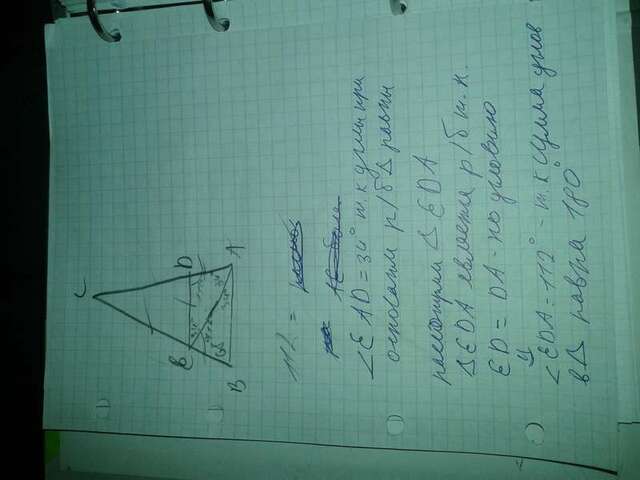 C
E
D
B
A
68°
34°
112 =
∠EAD = 34° т.к углы при
основании р/б Δ равны
рассмотрим Δ EDA
ΔEDA евляется р/б т.к.
ED = DA - по условию
∠EDA = 112° - т.к Сумма углов
в Δ равна 180°